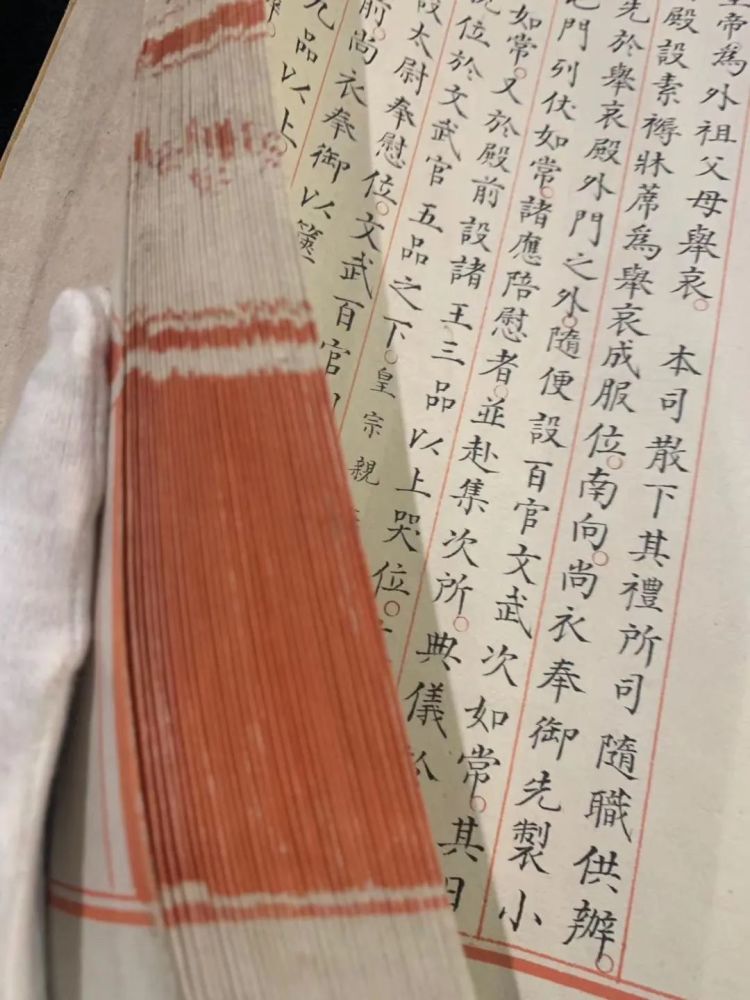 皇帝為外祖父母舉哀。本司散下其禮所司隨職供辦。
殿設素褥牀蓆為舉哀成服位。南向。尚衣奉御先製小
先於舉哀殿外門之外。隨便設百官文武次如常。其日
門列仗如常。諸應陪慰者。並赴集次所。典儀於
如常。又於殿前設諸王三品以上哭位。
位於文武官五品之下。皇宗親
設太尉奉慰位。文武百官
前。尚衣奉御以篋
品以上